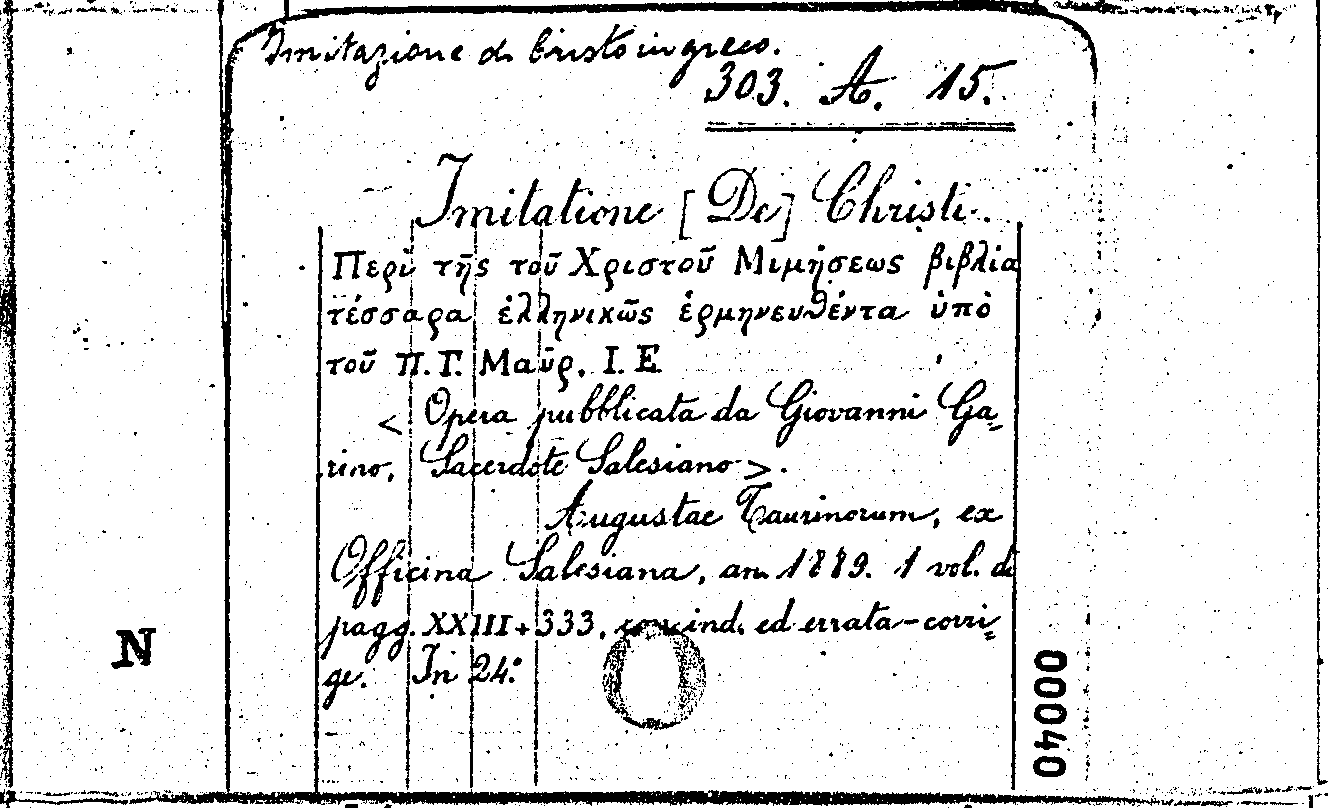 Imitazione di Cristo in greco.
303. A. 15.
Imitatione [De] Christi.
Περὶ τῆς τοῦ Χριστοῦ Μιμήσεως βιβλία
τέσσαρα ἑλληνικῶς ἑρμηνευθέντα ὑπὸ
τοῦ Π. Γ. Μαῦρ. Ι. Ε
< Opera pubblicata da Giovanni Ga=
rino, Sacerdote Salesiano >.
Augustae Taurinorum, ex
Officina Salesiana, an. 1889. 1 vol. di
pagg. XXIII+333, con ind. ed errata-corri=
ge. In 24°
N
00040